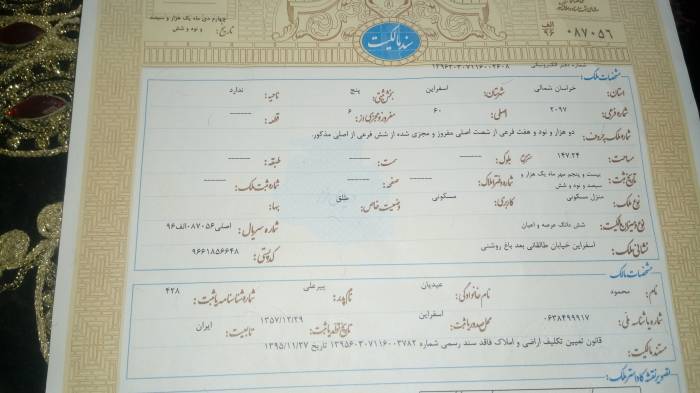 چهارم دی ماه یک هزار و سیصد
و نود و شش
تاریخ:
سند مالکیت
الف ۹۶ ۰۸۷۰۵۶
شماره دفتر الکترونیکی: ۱۳۹۶۲۰۳۰۷۱۱۶۰۰۲۶۰۸
مشخصات ملک:
استان: خراسان شمالی شهرستان: اسفراین بخش ثبتی: پنج ناحیه: ندارد
شماره فرعی: ۲۰۹۷ اصلی: ۶۰ مفروز و مجزی از: ۶ قطعه: ------
شماره ملک بحروف: دو هزار و نود و هفت فرعی از شصت اصلی مفروز و مجزی شده از شش فرعی از اصلی مذکور.
مساحت: ۱۴۷.۲۴ متر مربع بلوک: ------ سمت: ------ طبقه: ------
تاریخ ثبت: بیست و پنجم مهر ماه یک هزار و سیصد و نود و شش شماره دفتر املاک: ------ صفحه: ------ شماره ثبت ملک: ------
نوع ملک: منزل مسکونی کاربری: مسکونی وضعیت خاص: طلق بهاء:
نوع و میزان مالکیت: شش دانگ عرصه و اعیان شماره سریال: اصلی۰۸۷۰۵۶الف۹۶
نشانی ملک: اسفراین خیابان طالقانی بعد باغ روشنی کد پستی: ۹۶۶۱۸۵۶۶۴۸
مشخصات مالک:
نام: محموده نام خانوادگی: عیدیان نام پدر: پیرعلی شماره شناسنامه یا ثبت: ۴۲۸
شماره یا شناسه ملی: ۰۶۳۸۴۹۹۹۱۷ محل صدور یا ثبت: اسفراین تاریخ تولد یا ثبت: ۱۳۵۷/۱۲/۲۹ تابعیت: ایران
مستند مالکیت: قانون تعیین تکلیف اراضی و املاک فاقد سند رسمی شماره ۱۳۹۵۶۰۳۰۷۱۱۶۰۰۳۷۸۲ تاریخ ۱۳۹۵/۱۱/۲۷
تصویر نقشه کاداستر ملک: